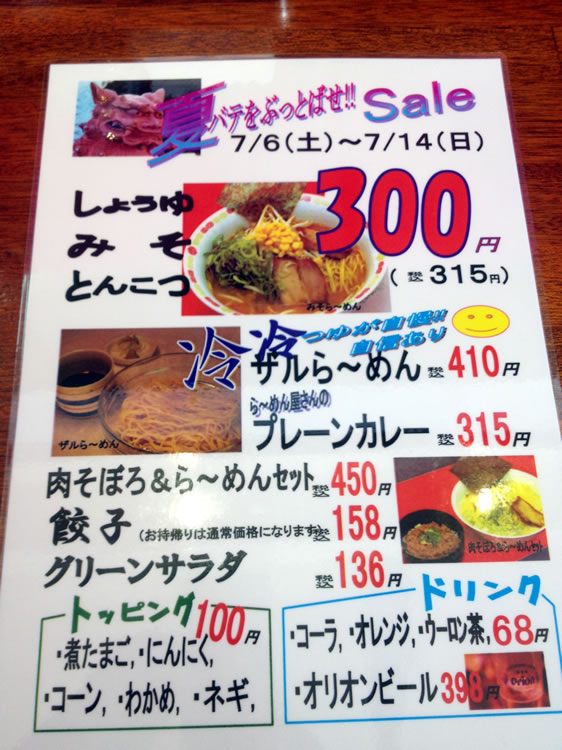 夏バテをぶっとばせ!! Sale
7/6(土)～7/14(日)
しょうゆ
みそ
とんこつ
300円
(税込 315円)
みそら～めん
冷 冷 つゆが自慢!!
自信あり
ザルら～めん 税込 410円
ザルら～めん
ら～めん屋さんの
プレーンカレー 税込 315円
肉そぼろ&ら～めんセット 税込 450円
餃子 (お持帰りは通常価格になります) 税込 158円
肉そぼろ&ら～めんセット
グリーンサラダ 税込 136円
トッピング 100円
・煮たまご, ・にんにく,
・コーン, ・わかめ, ・ネギ,
ドリンク
・コーラ, ・オレンジ, ・ウーロン茶, 68円
・オリオンビール 398円
Orion